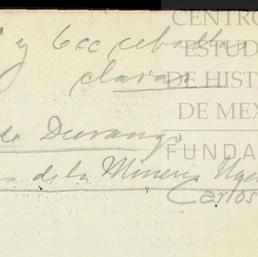 y 600 caballos
claran
CENTRO
ESTUD
DE HIST
DE MEX
de Durango
FUNDA
de la Mineria
Carlos